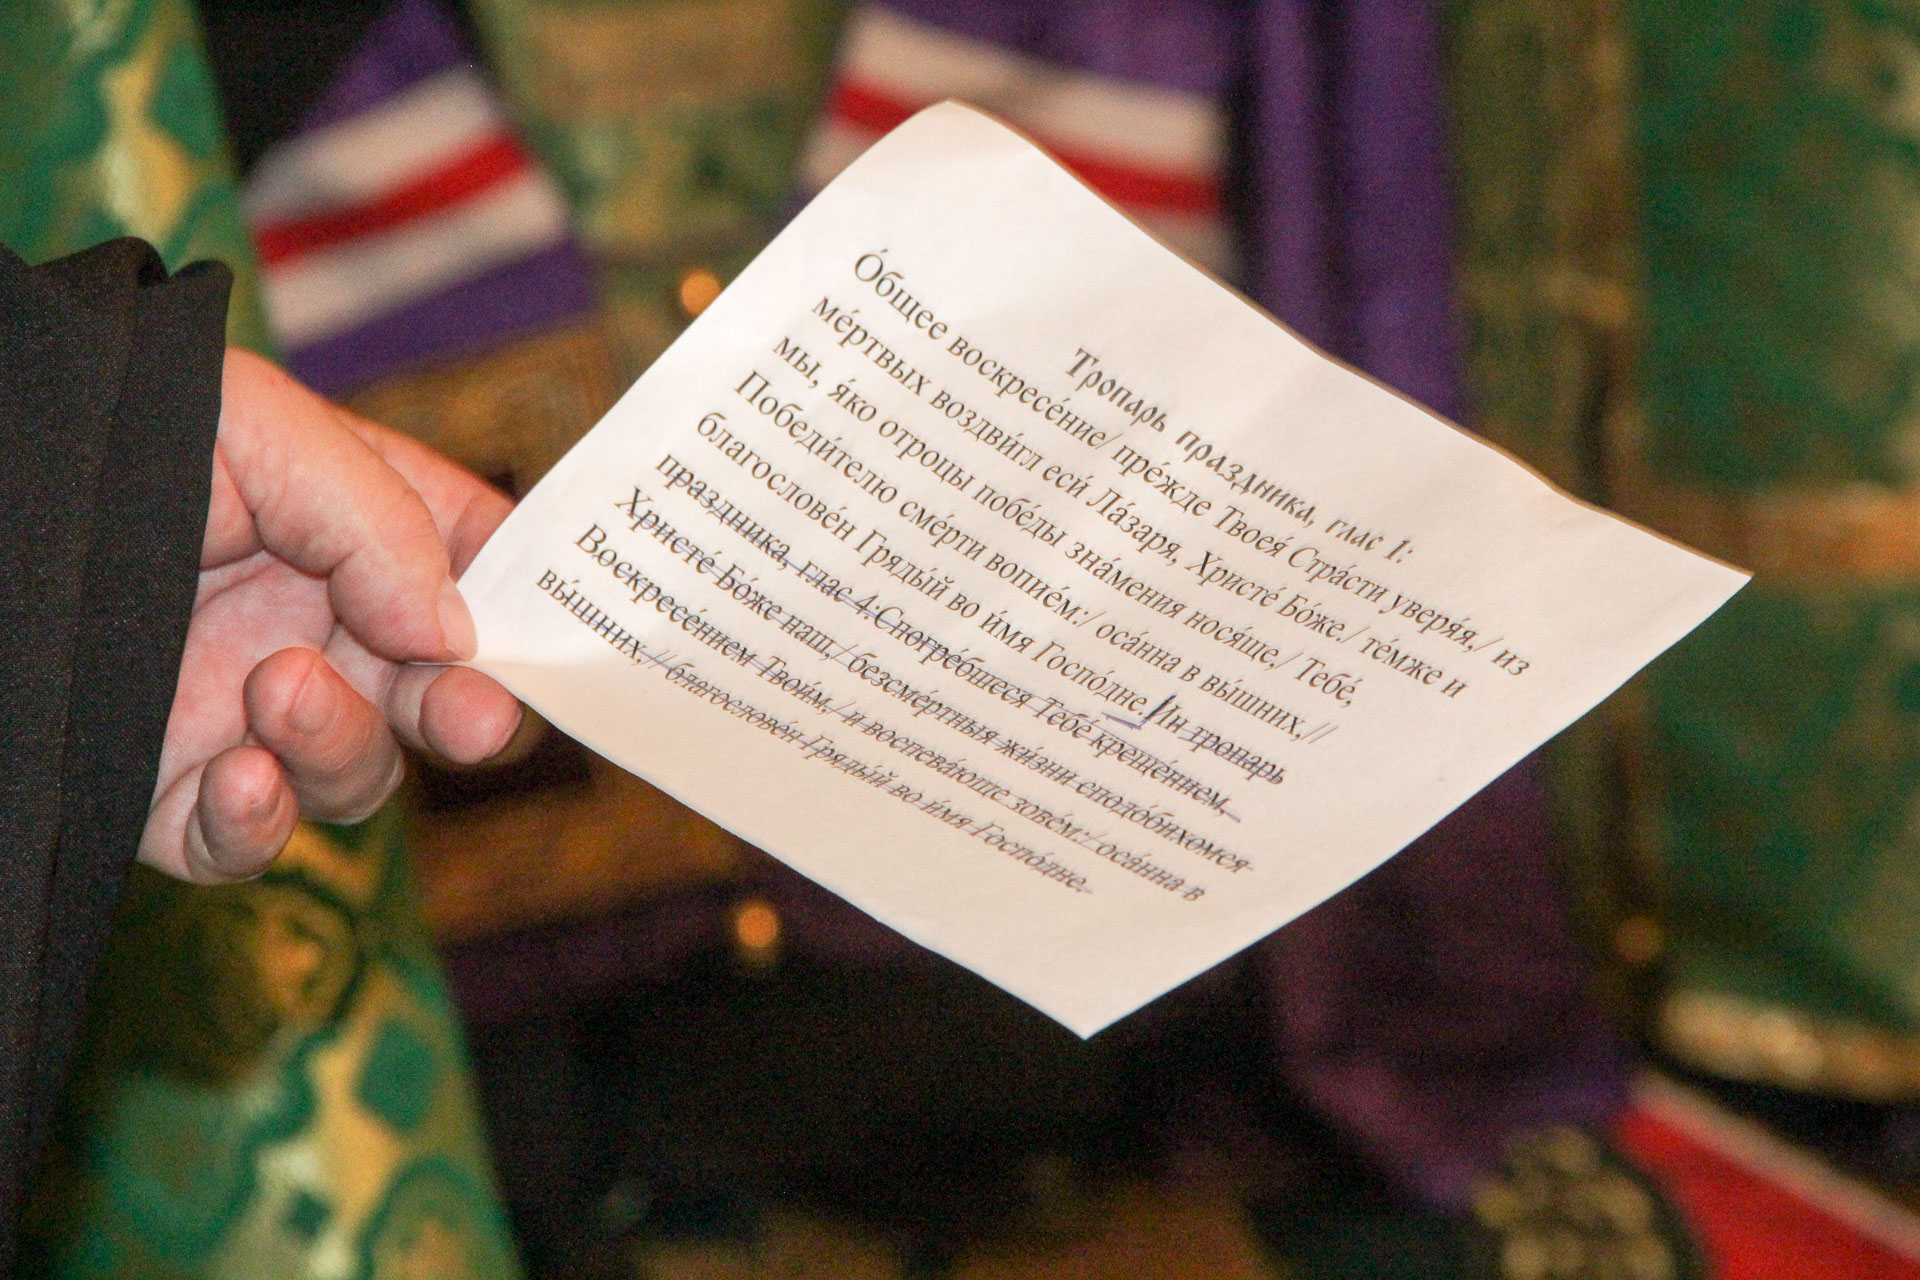 Тропарь праздника, глас 1:
О́бщее воскресе́ние/ пре́жде Твоея́ Стра́сти уверя́я,/ из
ме́ртвых воздви́гл еси́ Ла́заря, Христе́ Бо́же./ те́мже и
мы, я́ко отроцы побе́ды зна́мения нося́ще,/ Тебе́,
Победи́телю сме́рти вопие́м:/ оса́нна в вы́шних,//
благослове́н Гряды́й во и́мя Госпо́дне. Ин тропарь
праздника, глас 4:Спогре́бшеся Тебе́ креще́нием,
Христе́ Бо́же наш,/ безсме́ртныя жи́зни сподо́бихомся
Воскресе́нием Твои́м,/ и воспева́юще зове́м:/ оса́нна в
вы́шних,// благослове́н Гряды́й во и́мя Госпо́дне.